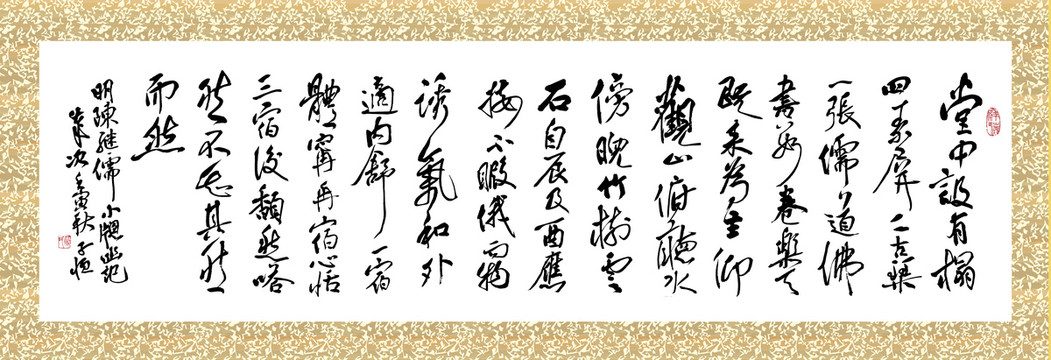 堂中設有榻
四素屏二古琴
一張儒道佛
書數卷樂天
既来為主仰
觀山俯聽水
傍睨竹樹雲
石自辰及酉應
接不暇俄而物
誘氣和外
適内舒一宿
體寧再宿心恬
三宿後頹然嗒
然不知其然
而然
明陳継儒小窗幽記
歲次壬寅秋子恒